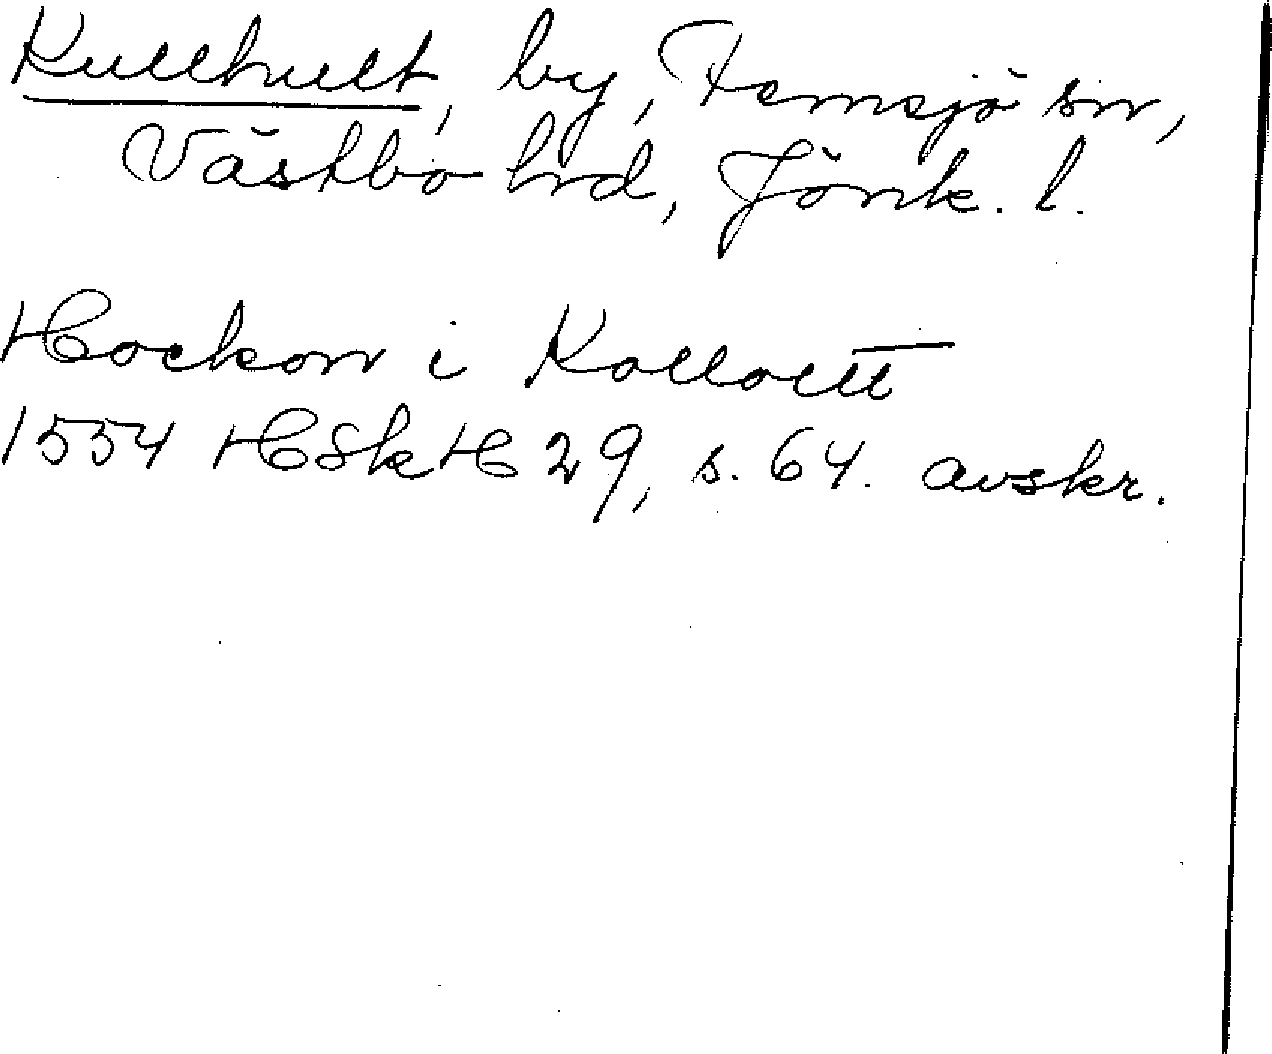 Kullhult, by, Femsjö sn,
Västbo hd, Jönk. l.
Hockon i Kolloltt
1554 HSkH 29, s. 64. avskr.